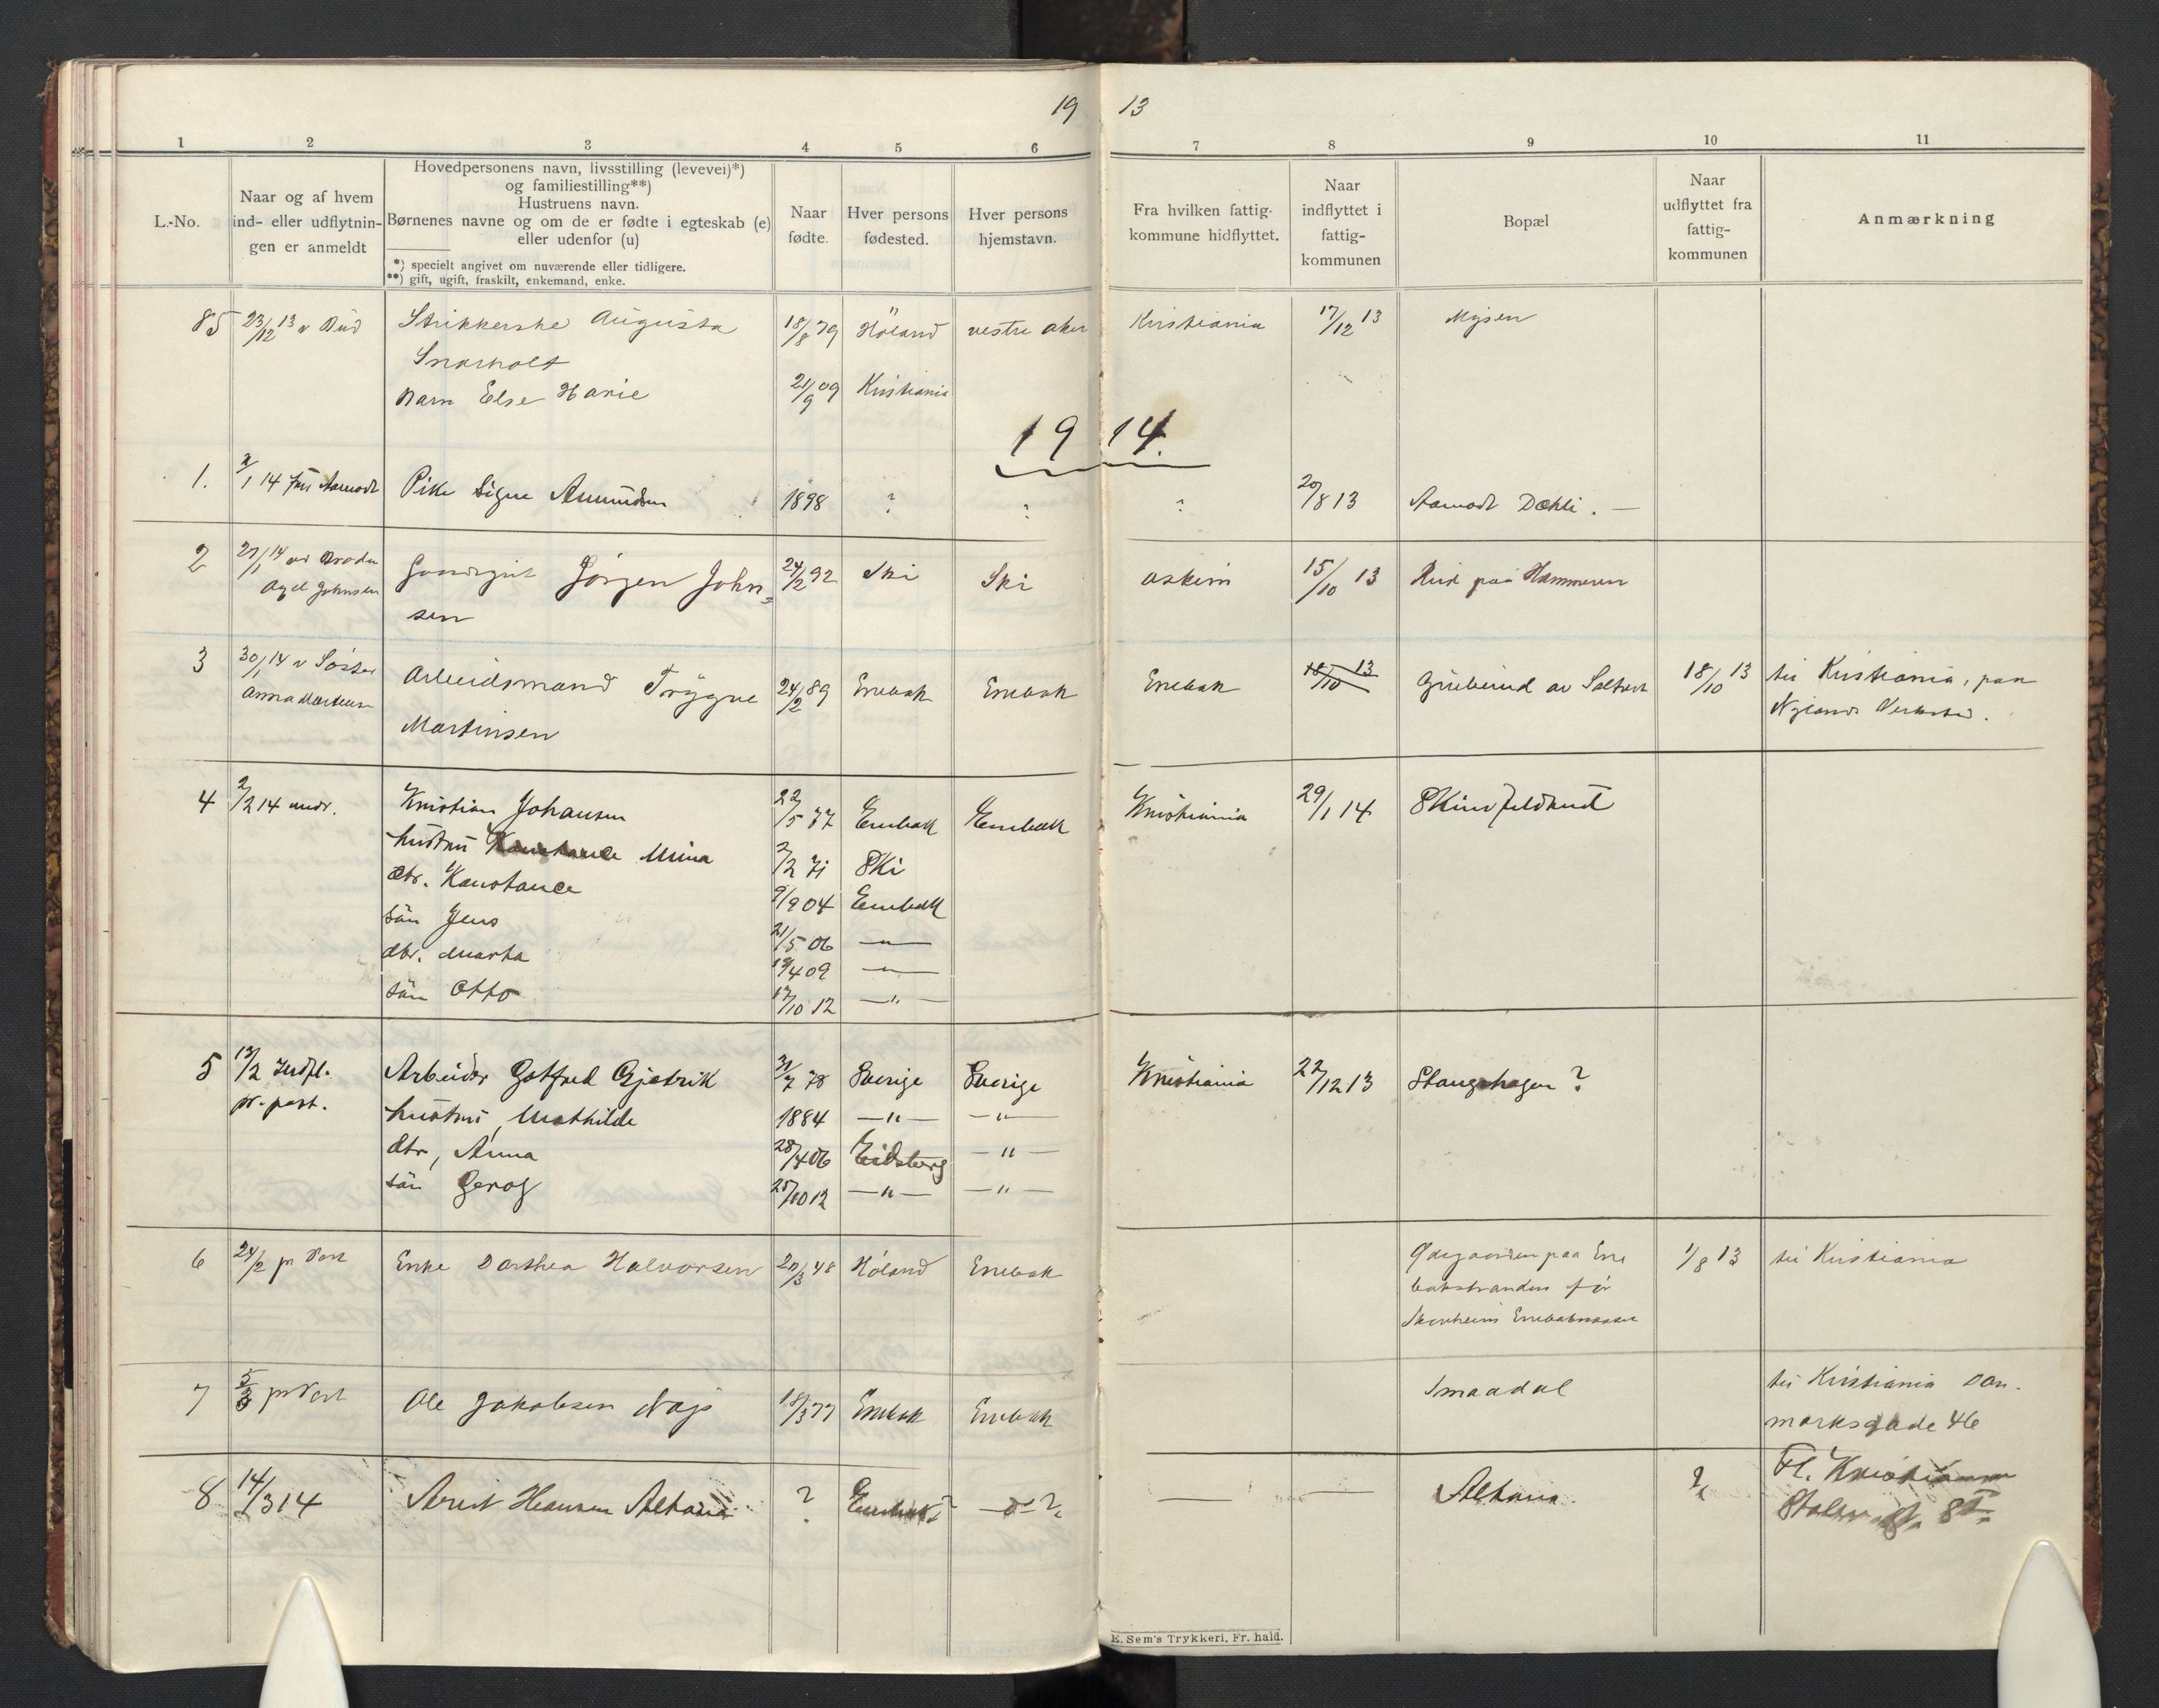 19 13
1 2 3 4 5 6 7 8 9 10 11
L.-No.
Naar og af hvem
ind- eller udflytnin-
gen er anmeldt
Hovedpersonens navn, livsstilling (levevei)*)
og familiestilling**)
Hustruens navn.
Børnenes navne og om de er fødte i egteskab (e)
eller udenfor (u)
*) specielt angivet om nuværende eller tidligere.
**) gift, ugift, fraskilt, enkemand, enke.
Naar
fødte.
Hver persons
fødested.
Hver persons
hjemstavn.
Fra hvilken fattig-
kommune hidflyttet.
Naar
indflyttet i
fattig-
kommunen
Bopæl
Naar
udflyttet fra
fattig-
kommunen
Anmærkning
85 23/12 13 v Bud Strikkerske Augusta 18/8 79 Höland vestre aker Kristiania 17/12 13 Mysen
Snarholt
Barn Else Marie 21/9 09 Kristiania
1914.
1. 2/1 14 Aamodt Pike Signe Amundsen 1898 ? ? ? 20/8 13 Aamodt Dæhli. —
2 27/1 14 av Broder Gaardsgut Jörgen John= 24/2 92 Ski Ski Askim 15/10 13 Rud paa Hammeren
Axel Johnsen sen
3 30/1 14 v Søster Arbeidsmand Trÿgve 24/2 89 Enebak Enebak Enebak 18/10 13 18/10 13 til Kristiania, paa
Anna Martinsen Martinsen Nylands Verksted.
4 2/2 14 Kristian Johansen 22/5 77 Enebak Enebak Kristiania 29/1 14
hustru Mina 2/2 71 Ski
dtr. Konstance 9/9 04 Enebak
sön Jens 21/5 06 — " —
dtr. Marta 19/4 09 — " —
sön Otto 17/10 12 — " —
5 13/2 Indfl. Arbeider Gotfred Gjetrik 31/7 78 Sverige Sverige Kristiania 22/12 13 Stangshagen ?
pr. post. hustru, Mathilde 1884 — " — — " —
dtr, Anna 28/4 06 Eidsberg — " —
sön Gerog 25/10 12 — " — — " —
6 24/2 pr Post Enke Dorthea Halvorsen 20/3 48 Höland Enebak Ødegaarden paa Ene 1/8 13 til Kristiania
bakstranden før
7 5/3 pr Post Ole Jakobsen 18/3 77 Enebak Enebak Smaadal til Kristiania Dan-
marksgade 46
8 14/3 14 Hansen Altona ? Enebak? — " — ? — — Altona. ? Fl. Kristiania